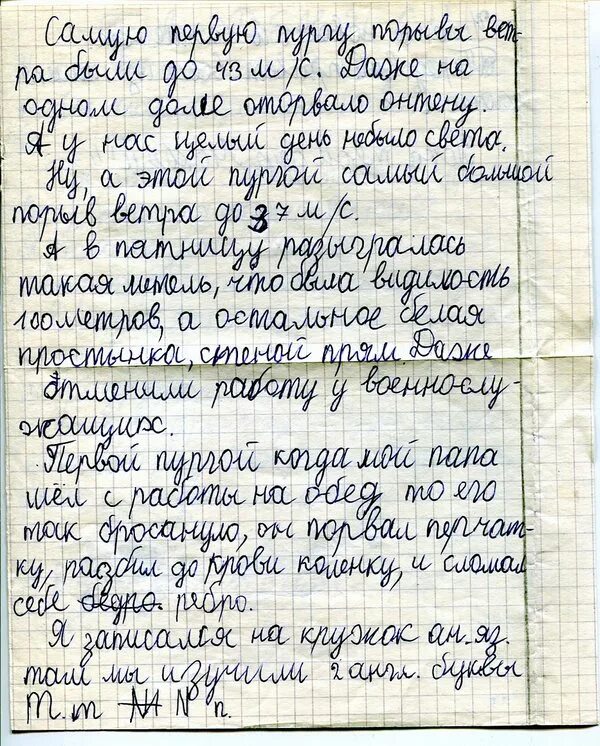 Самую первую пургу порывы вет-
ра были до 43 м/с. Даже на
одном доме оторвало онтену.
А у нас целый день небыло света.
Ну, а этой пургой самый большой
порыв ветра до 37 м/с.
А в патницу разыгралась
такая метель, что была видимость
100 метров, а остальное белая
простынка, стеной прям. Даже
отменили работу у военнослу-
жащих.
Первой пургой когда мой папа
шёл с работы на обед то его
так бросануло, он порвал перчат-
ку, разбил до крови коленку, и сломал
себе бедро. ребро.
Я записался на кружок ан. яз.
там мы изучили 2 англ. буквы
М. m N n.